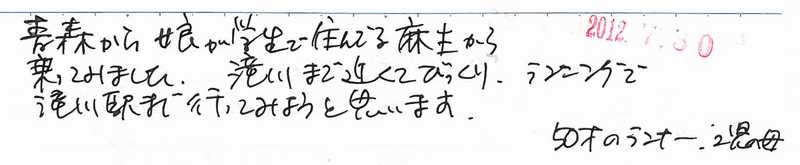 青森から娘が学生で住んでる麻生から
乗ってみました。滝川まで近くてびっくり。ランニングで
滝川駅まで行ってみようと思います。
50才のランナー。2児の母
2012.7.30